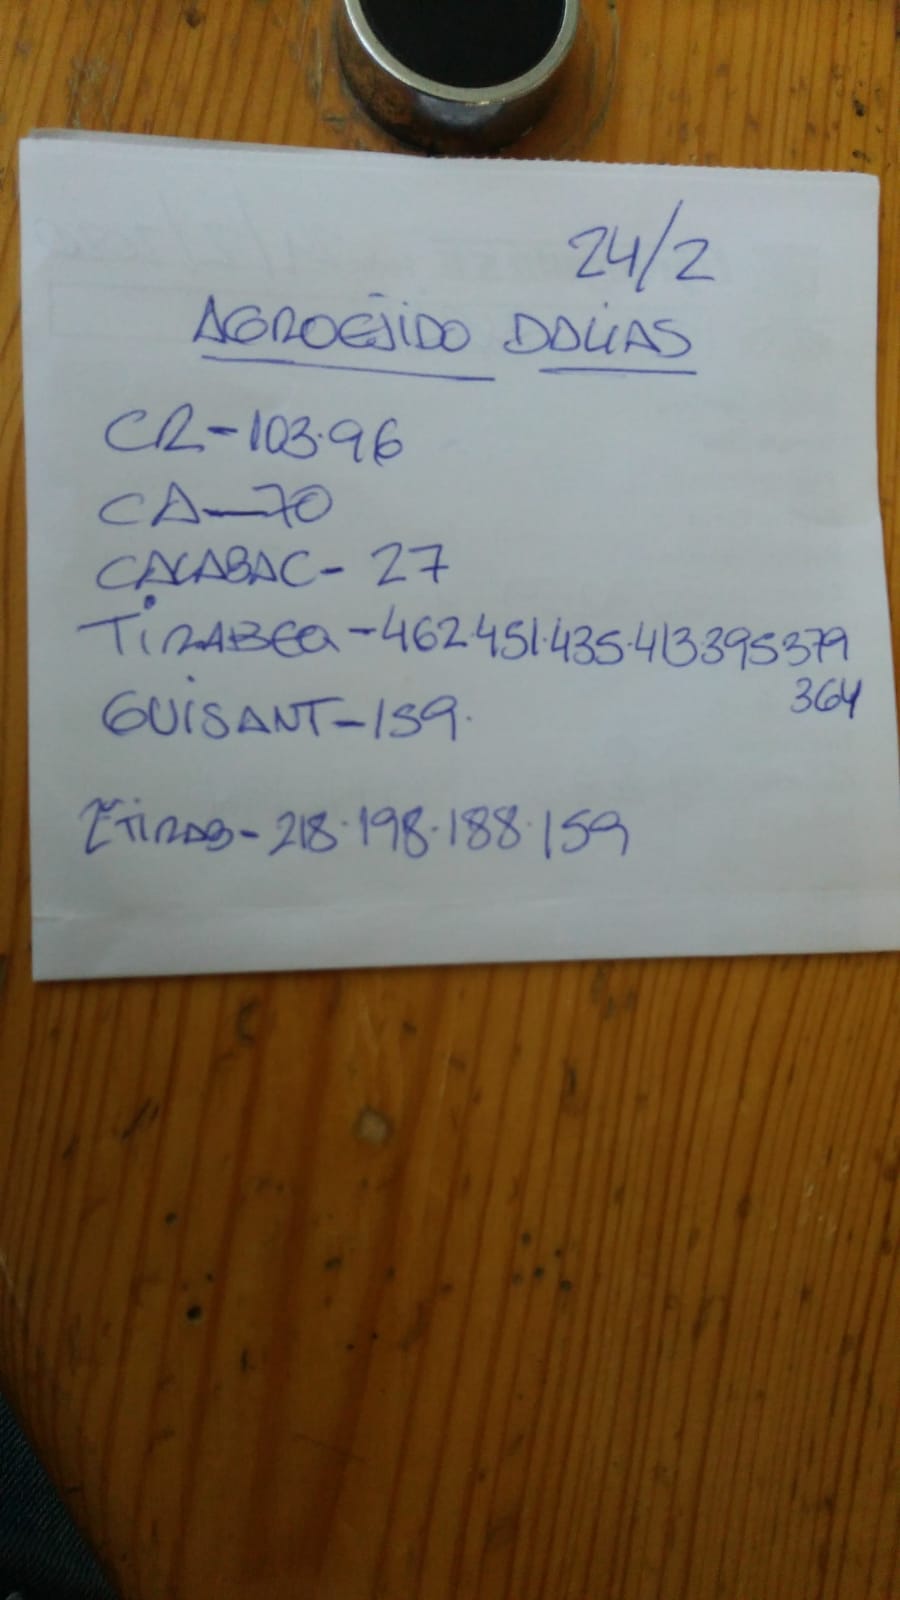 24/2
AGROEJIDO DALIAS
CR-103.96
CA-70
CALABAC- 27
TIRABEQ-462.451.435.413.395.379
364
GUISANT-159.
2ªTIRAB- 218.198.188.159